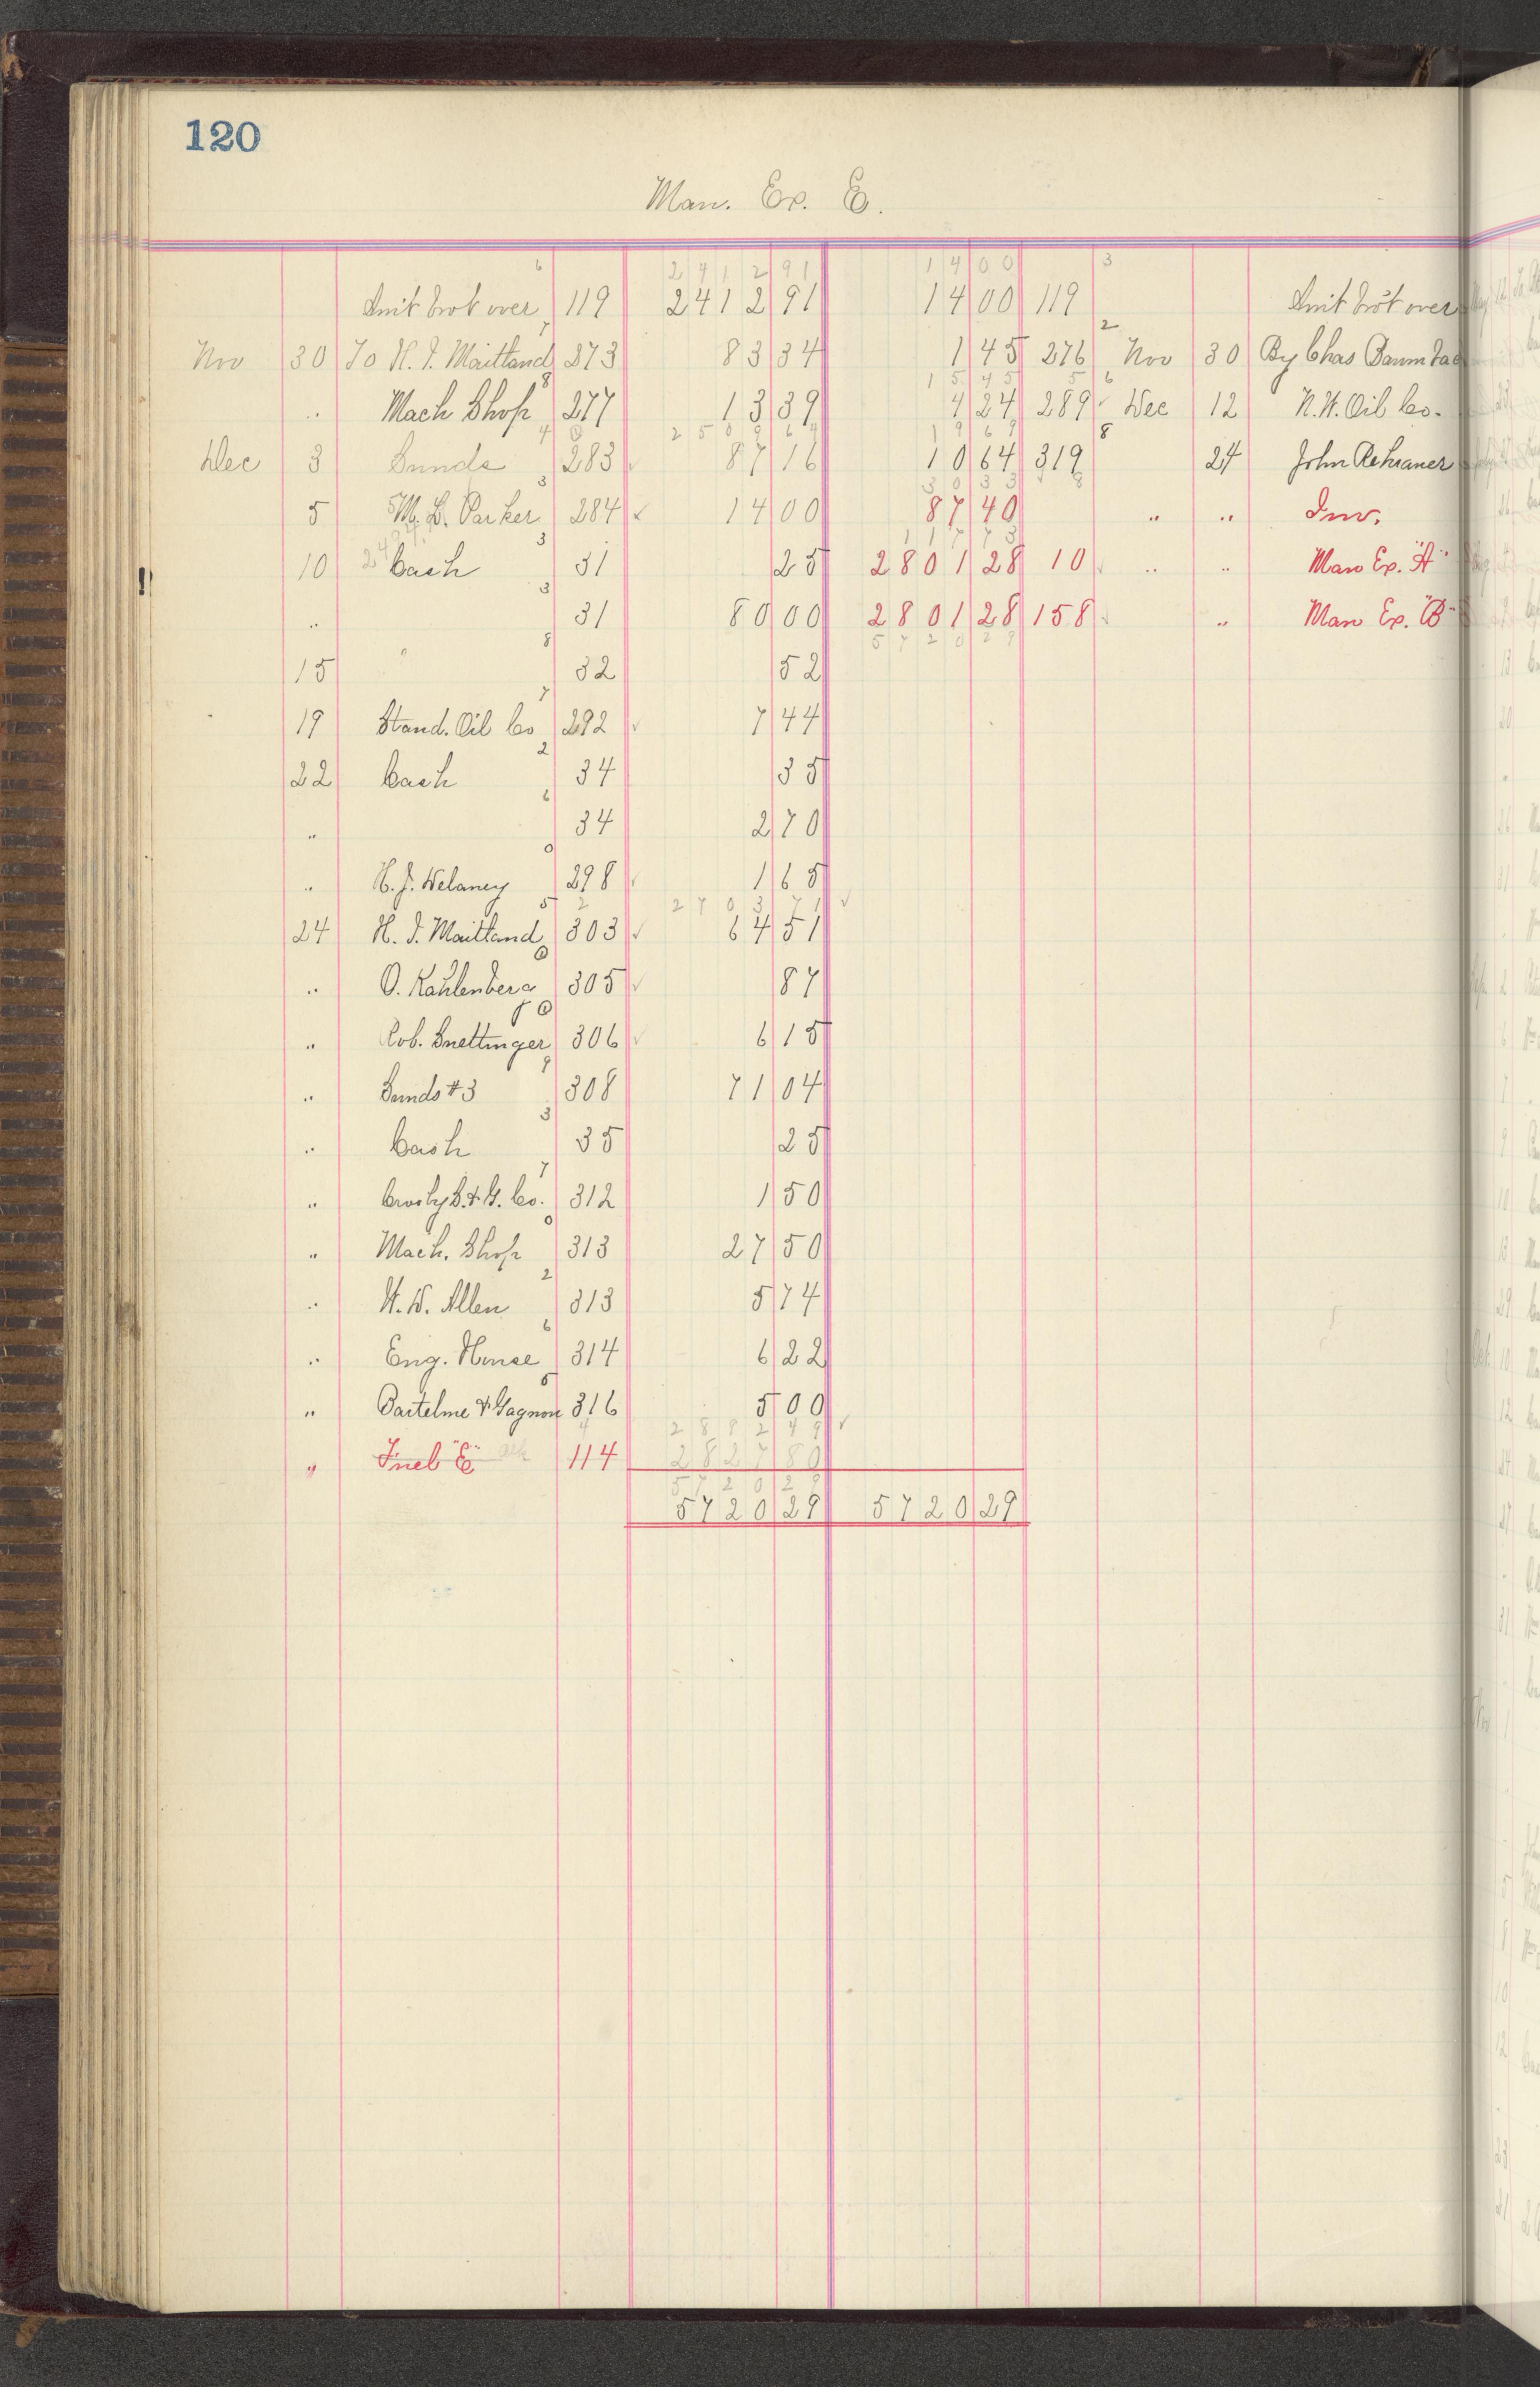 120
Man. Ex. E.
2 4 1 2 91 1 4 00
Amt brot over 119 2412 91 14 00 119 Amt brot over
Nov 30 To H. I. Maitland 273 83 34 1 45 276 Nov 30 By Chas
15 45
" Mach Shop 277 13 39 4 24 289 Dec 12 N.W. Oil Co.
2509 64 19 69
Dec 3 Sunds 283 87 16 10 64 319 24 John
30 33
5 M. B. Parker 284 14 00 87 40 " " Inv.
117 73
10 Cash 31 25 2801 28 10 " " Man Ex. "A"
" 31 80 00 2801 28 158 " Man Ex. "B"
5720 29
15 " 32 52
19 Stand. Oil Co 292 7 44
22 Cash 34 35
" 34 2 70
" C. J. Delaney 298 1 65
2703 71
24 H. I. Maitland 303 64 51
" O. Kahlenberg 305 87
" Rob. Snettinger 306 6 15
" Sunds #3 308 71 04
" Cash 35 25
" Crosby S. & G. Co. 312 1 50
" Mach. Shop 313 27 50
" W. D. Allen 313 5 74
" Eng. House 314 6 22
" Bartelme & Gagnon 316 5 00
2892 49
" Fuel "E" 114 2827 80
5720 29
5720 29 5720 29